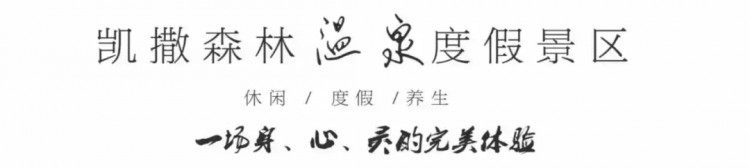 凯撒森林温泉度假景区
休闲 / 度假 /养生
一场身、心、灵的完美体验